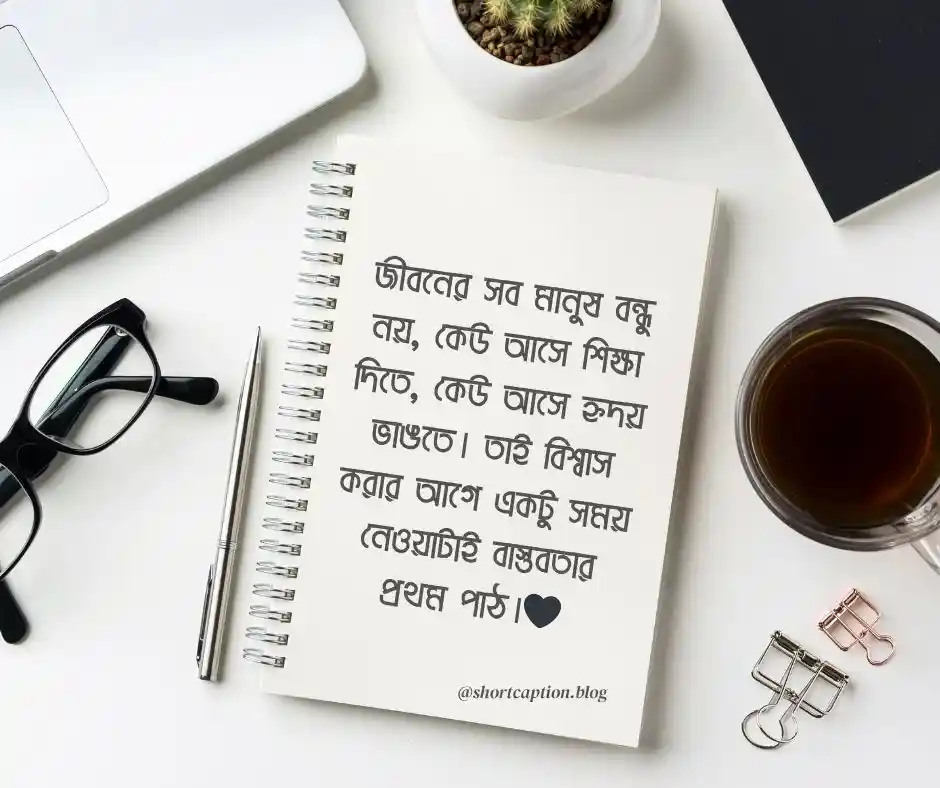 জীবনের সব মানুষ বন্ধু
নয়, কেউ আসে শিক্ষা
দিতে, কেউ আসে হৃদয়
ভাঙতে। তাই বিশ্বাস
করার আগে একটু সময়
নেওয়াটাই বাস্তবতার
প্রথম পাঠ।🖤
@shortcaption.blog